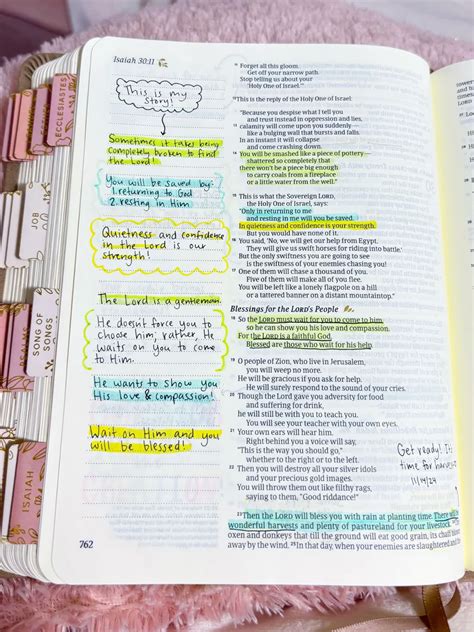 Isaiah 30:11
This is my
story!
Sometimes it takes being
completely broken to find
the Lord!
You will be saved by:
1. returning to God
2. resting in Him
Quietness and confidence
in the Lord is our
strength!
The Lord is a gentleman.
He doesn't force you to
choose him; rather, He
waits on you to come
to Him.
He wants to show you
His love & compassion!
Wait on Him and you
will be blessed!
762
ECCLESIASTES
JOB
SONG OF
SONGS
ISAIAH
11 Forget all this gloom.
Get off your narrow path.
Stop telling us about your
'Holy One of Israel.'"
12 This is the reply of the Holy One of Israel:
"Because you despise what I tell you
and trust instead in oppression and lies,
13 calamity will come upon you suddenly—
like a bulging wall that bursts and falls.
In an instant it will collapse
and come crashing down.
14 You will be smashed like a piece of pottery—
shattered so completely that
there won't be a piece big enough
to carry coals from a fireplace
or a little water from the well."
15 This is what the Sovereign LORD,
the Holy One of Israel, says:
"Only in returning to me
and resting in me will you be saved.
In quietness and confidence is your strength.
But you would have none of it.
16 You said, 'No, we will get our help from Egypt.
They will give us swift horses for riding into battle.'
But the only swiftness you are going to see
is the swiftness of your enemies chasing you!
17 One of them will chase a thousand of you.
Five of them will make all of you flee.
You will be left like a lonely flagpole on a hill
or a tattered banner on a distant mountaintop."
Blessings for the LORD's People
18 So the LORD must wait for you to come to him
so he can show you his love and compassion.
For the LORD is a faithful God.
Blessed are those who wait for his help.
19 O people of Zion, who live in Jerusalem,
you will weep no more.
He will be gracious if you ask for help.
He will surely respond to the sound of your cries.
20 Though the Lord gave you adversity for food
and suffering for drink,
he will still be with you to teach you.
You will see your teacher with your own eyes.
21 Your own ears will hear him.
Right behind you a voice will say,
"This is the way you should go,"
whether to the right or to the left.
22 Then you will destroy all your silver idols
and your precious gold images.
You will throw them out like filthy rags,
saying to them, "Good riddance!"
Get ready! It's
time for harvest
11/14/24
23 Then the LORD will bless you with rain at planting time. There will be
wonderful harvests and plenty of pastureland for your livestock. 24 The
oxen and donkeys that till the ground will eat good grain, its chaff
away by the wind. 25 In that day, when your enemies are slaughtered and the